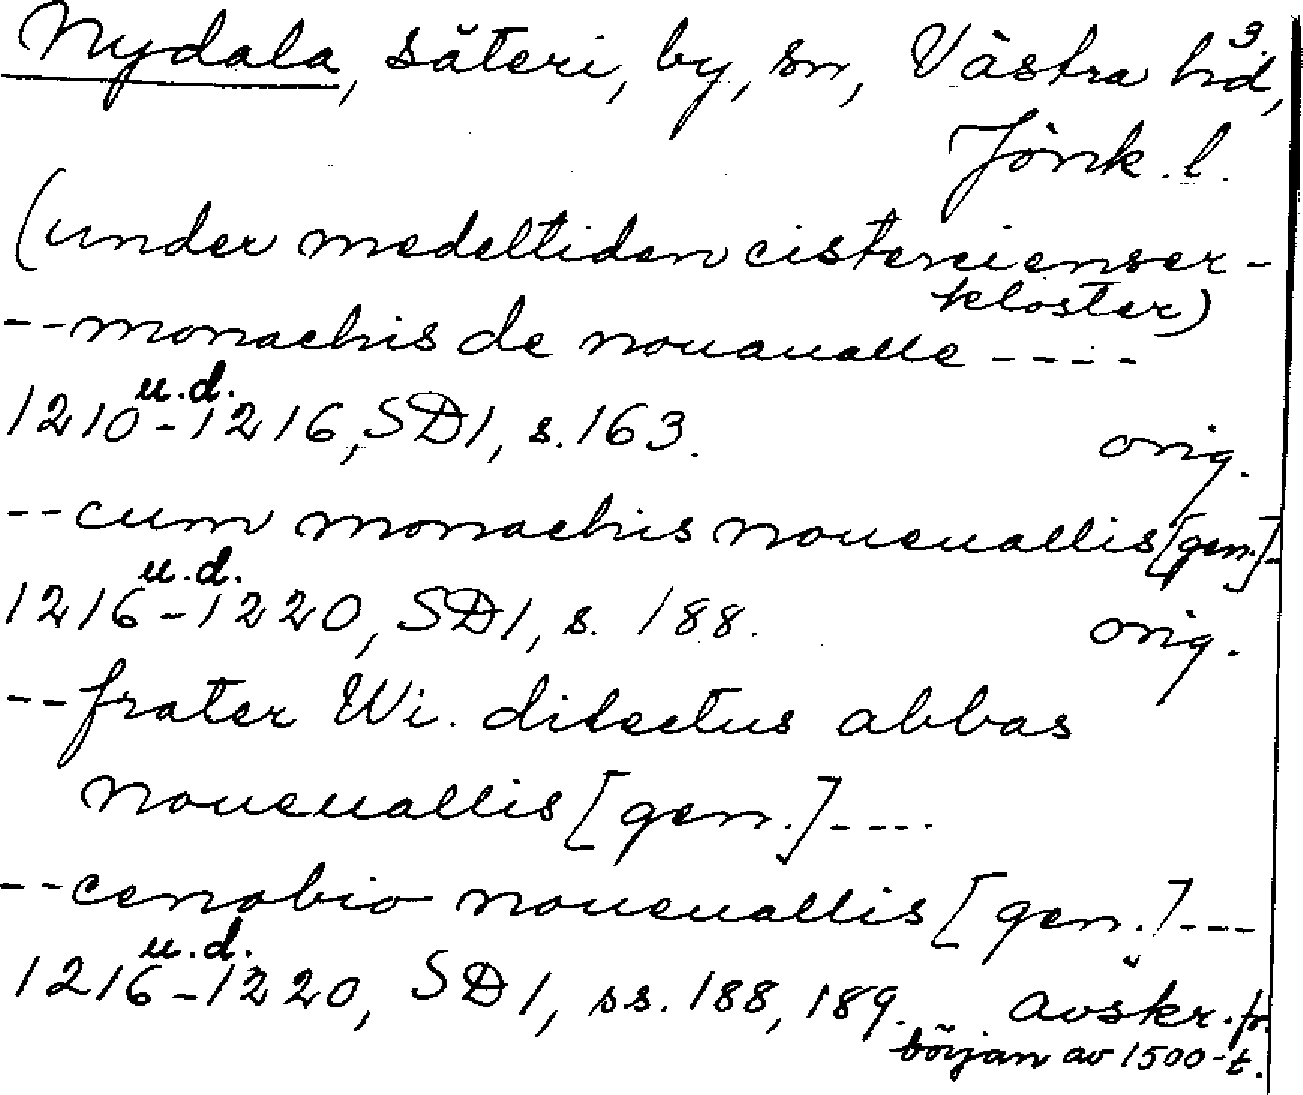 Nydala, säteri, by, sn, Västra hd, 3.
Jönk. l.
(under medeltiden cistercienser-
kloster)
--monachis de nouaualle ----
u.d.
1210-1216, SD1, s. 163. orig.
--cum monachis noueuallis [gen.]-
u.d.
1216-1220, SD1, s. 188. orig.
--frater Wi. dilectus abbas
noueuallis [gen.] ----
--cenobio noueuallis [gen.] ---
u.d.
1216-1220, SD1, ss. 188, 189. avskr. fr.
början av 1500-t.